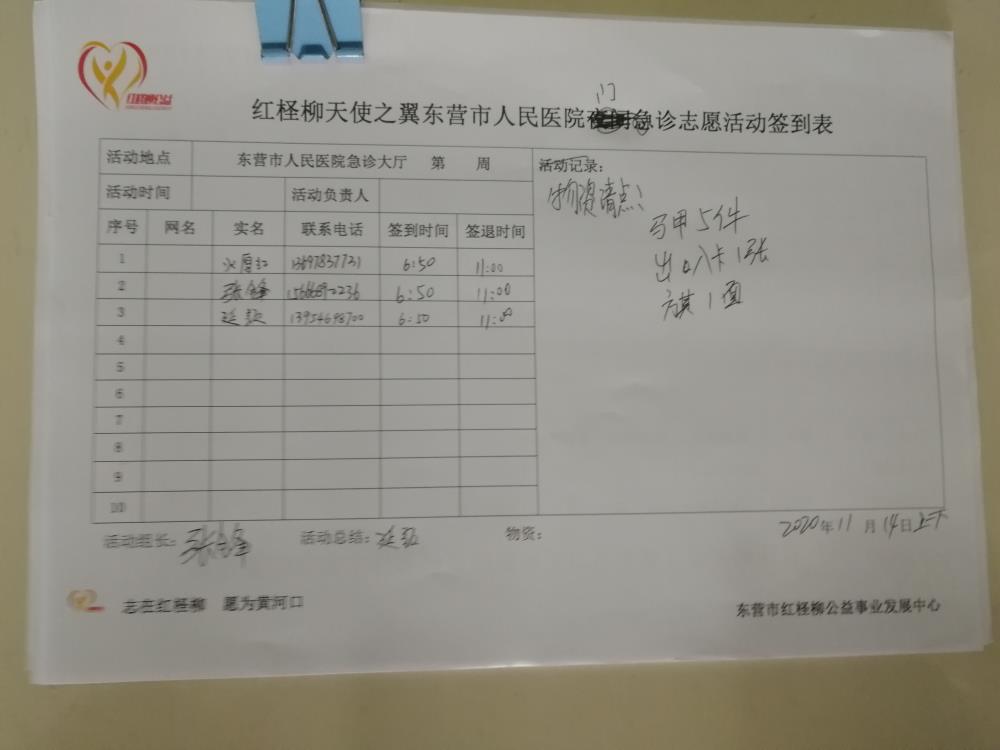 红柽柳公益
门
红柽柳天使之翼东营市人民医院急诊志愿活动签到表
活动地点 东营市人民医院急诊大厅 第 周
活动时间 活动负责人
序号 网名 实名 联系电话 签到时间 签退时间
1 6:50 11:00
2 张锋 6:50 11:00
3 13954698700 6:50 11:00
4
5
6
7
8
9
10
活动记录:
物资清点:
马甲5件
出入卡1张
旗1面
活动组长: 张锋 活动总结: 物资:
2020年11月14日上午
志在红柽柳 愿为黄河口
东营市红柽柳公益事业发展中心